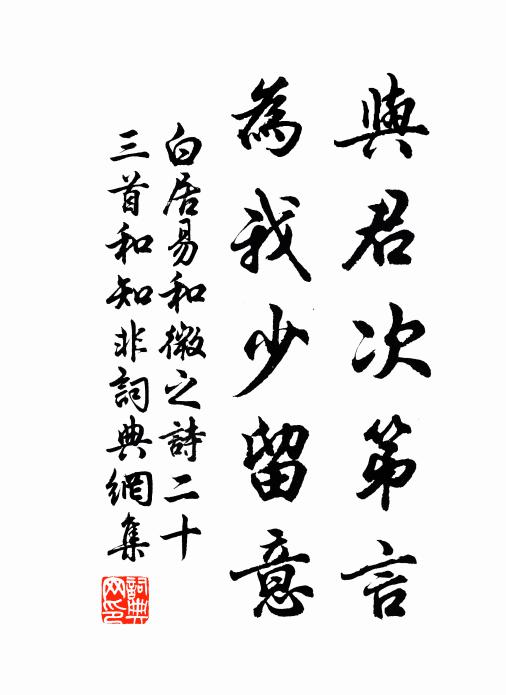 與君次第言
為我少留意
白居易和微之詩二十
三首和知非詞典網集